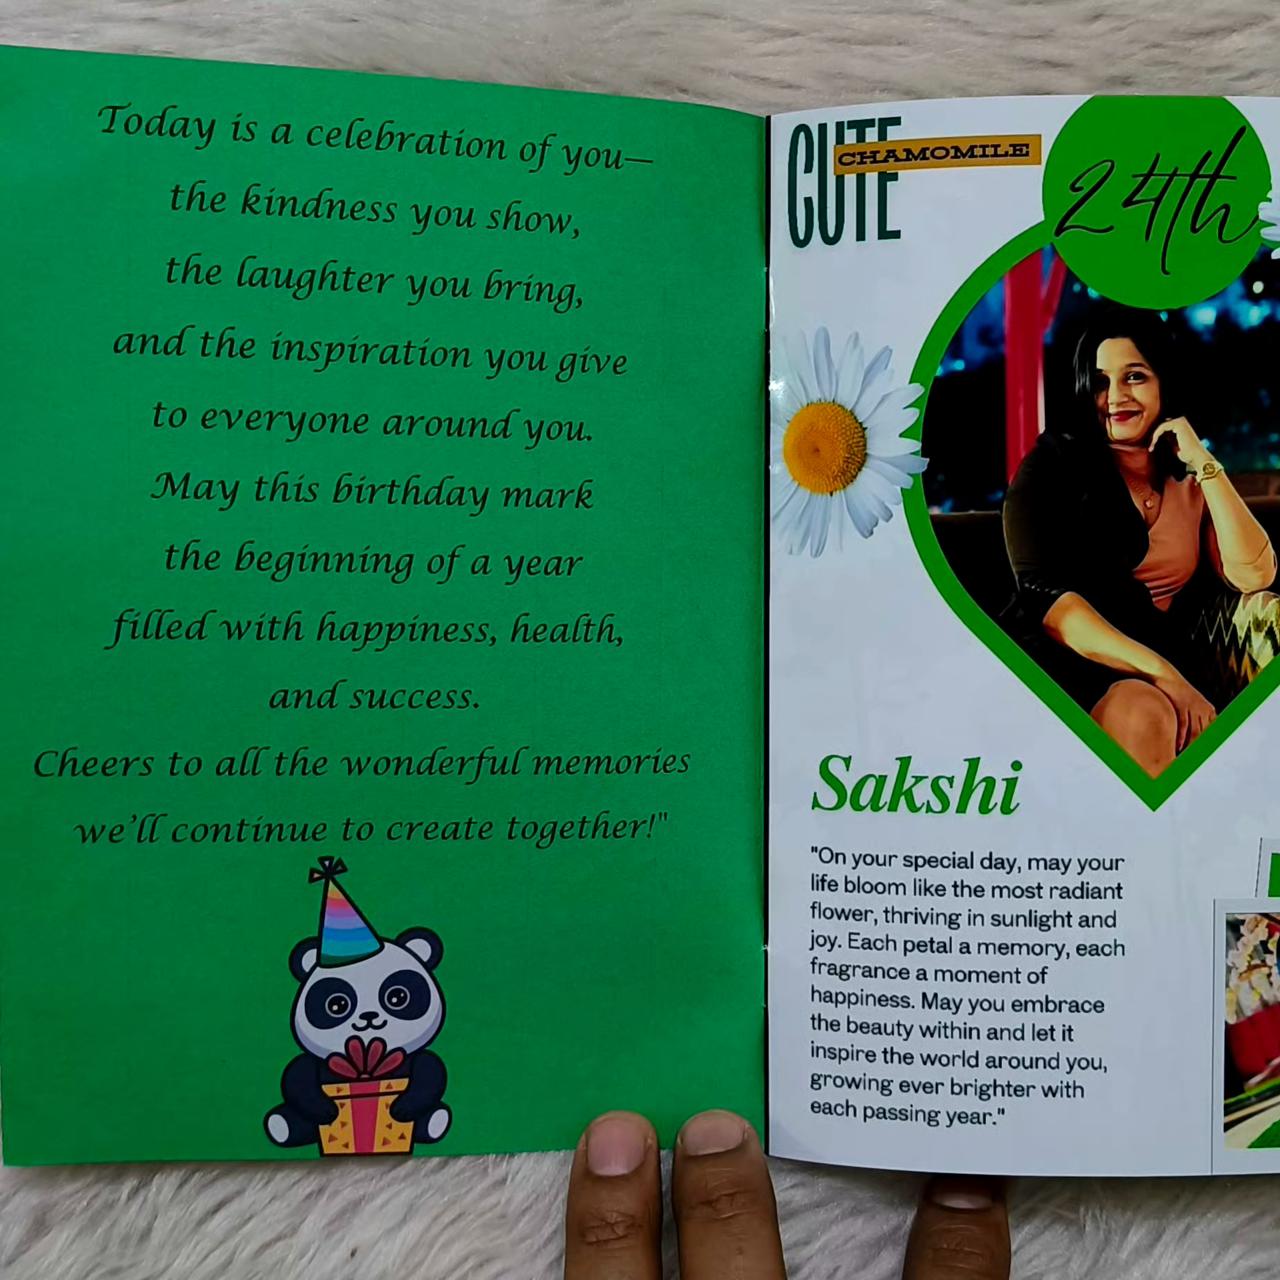 Today is a celebration of you—
the kindness you show,
the laughter you bring,
and the inspiration you give
to everyone around you.
May this birthday mark
the beginning of a year
filled with happiness, health,
and success.
Cheers to all the wonderful memories
we'll continue to create together!"
CUTE
CHAMOMILE
24th
Sakshi
"On your special day, may your
life bloom like the most radiant
flower, thriving in sunlight and
joy. Each petal a memory, each
fragrance a moment of
happiness. May you embrace
the beauty within and let it
inspire the world around you,
growing ever brighter with
each passing year."